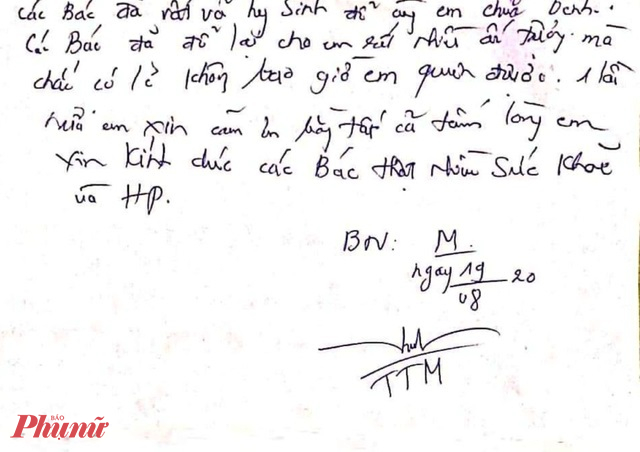 các Bác đã vất vả hy sinh để cứu em chữa bệnh.
Các Bác đã để lại cho em rất nhiều ấn tượng mà
chắc có lẽ không bao giờ em quên được. 1 lần
nữa em xin cảm ơn bằng tất cả tấm lòng em
xin kính chúc các Bác thật nhiều sức khoẻ
và HP.
BN: M.
ngày 19/08 20
TTM
BÁO
Phụ nữ